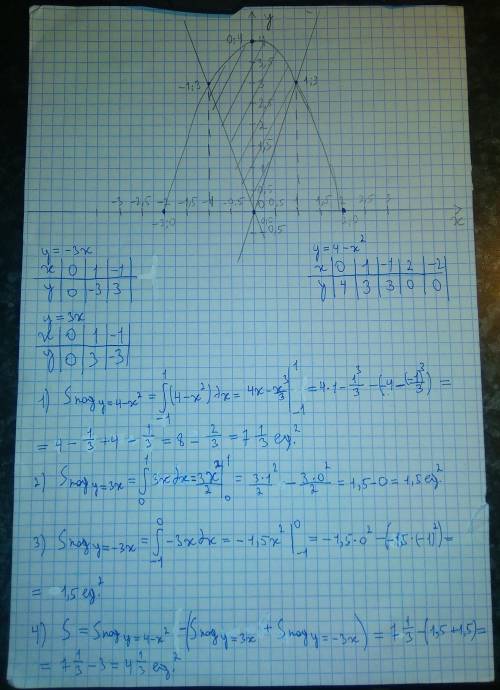 y
0;4 4
3,5
-1;3 3 1;3
2,5
2
1,5
1
0,5
-3 -2,5 -2 -1,5 -1 -0,5 0 0,5 1 1,5 2 2,5 3 x
-2;0 -0,5 2;0
y = -3x y = 4 - x²
x | 0 | 1 | -1 | x | 0 | 1 | -1 | 2 | -2
y | 0 | -3 | 3 | y | 4 | 3 | 3 | 0 | 0
y = 3x
x | 0 | 1 | -1
y | 0 | 3 | -3
1) Sпод y=4-x² = ∫₋₁¹ (4-x²) dx = 4x - x³/3 |₋₁¹ = 4·1 - 1³/3 - (-4 - (-1)³/3) =
= 4 - 1/3 + 4 - 1/3 = 8 - 2/3 = 7 1/3 ед.²
2) Sпод y=3x = ∫₀¹ 3xdx = 3x²/2 |₀¹ = 3·1²/2 - 3·0²/2 = 1,5 - 0 = 1,5 ед.²
3) Sпод y=-3x = ∫₋₁⁰ -3xdx = -1,5x² |₋₁⁰ = -1,5·0² - (-1,5·(-1)²) =
= 1,5 ед.²
4) S = Sпод y=4-x² - (Sпод y=3x + Sпод y=-3x) = 7 1/3 - (1,5 + 1,5) =
= 7 1/3 - 3 = 4 1/3 ед.²